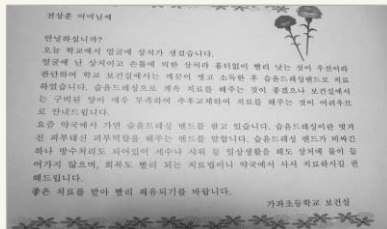 전상훈 어머님께
안녕하십니까?
오늘 학교에서 얼굴에 상처가 생겼습니다.
얼굴에 난 상처이고 손톱에 의한 상처라 흉터없이 빨리 낫는 것이 우선이라
판단하여 학교 보건실에서는 깨끗이 씻고 소독한 후 습윤드레싱밴드로 치료
하였습니다. 습윤드레싱으로 계속 치료를 해주는 것이 좋겠으나 보건실에서
는 구비된 양이 매우 부족하여 추후교체하여 치료를 해주는 것이 어려우므
로 안내드립니다.
요즘 약국에서 가면 습윤드레싱 밴드를 팔고 있습니다. 습윤드레싱이란 벗겨
진 피부대신 피부역할을 해주는 밴드를 말합니다. 습윤드레싱 밴드가 비싸긴
하나 방수처리도 되어있어 세수나 샤워 등 일상생활을 해도 상처에 물이 들
어가지 않으며, 회복도 빨리 되는 치료법이니 약국에서 사서 치료하시길 권
해드립니다.
좋은 치료를 받아 빨리 쾌유되기를 바랍니다.
가좌초등학교 보건실